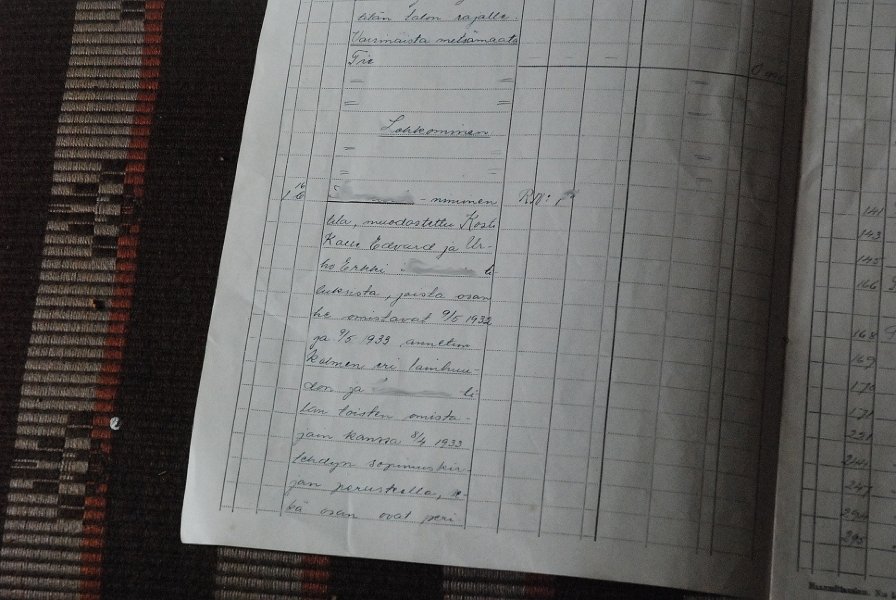 tilan talon rajalle.
Varsinaista metsämaata
Tie
= =
= =
Lohkominen
= =
= =
1 16 6 - niminen RN: 1
tila, muodostettu Kosti
Kalle Edvard ja Ur-
ho Erkki ti
luksista, joista osan
he omistavat 9/5 1932
ja 9/5 1933 annetun
kolmen eri lainhuu-
don ja ti
lan toisten omista-
jain kanssa 8/4 1933
tehdyn sopimuskir
jan perusteella, se-
kä osan ovat peri
141
143
145
166
168
169
170
171
221
241
247
295